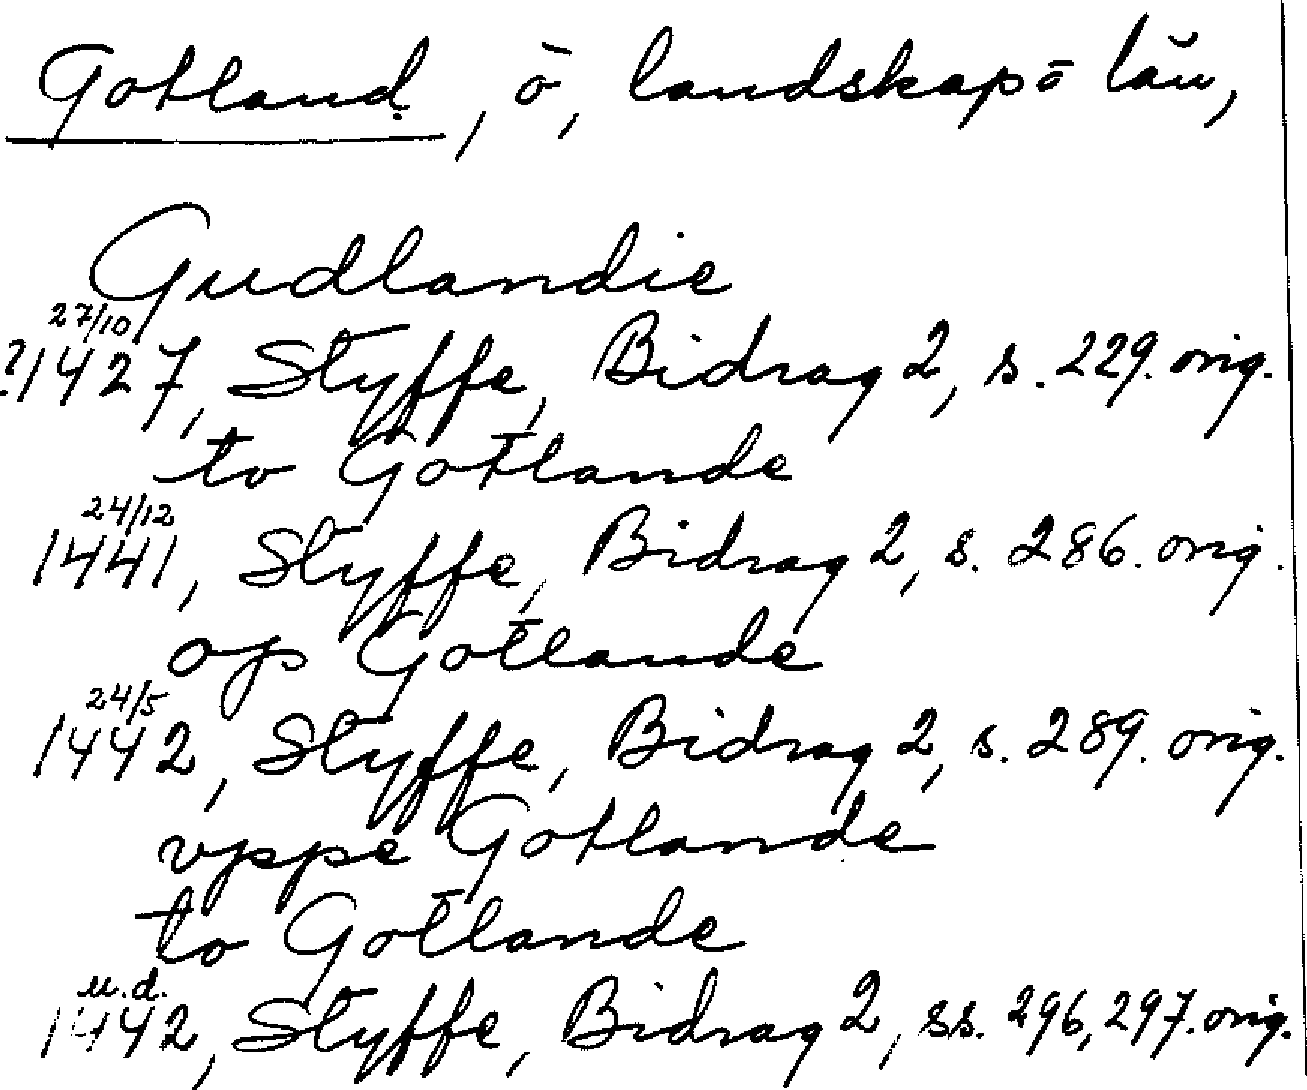 Gotland, ö, landskap o län,
Gudlandie
27/10
?1427, Styffe, Bidrag 2, s. 229. orig.
to Gotlande
24/12
1441, Styffe, Bidrag 2, s. 286. orig.
op Gotlande
24/5
1442, Styffe, Bidrag 2, s. 289. orig.
vppe Gotlande
to Gotlande
u.d.
1442, Styffe, Bidrag 2, ss. 296, 297. orig.